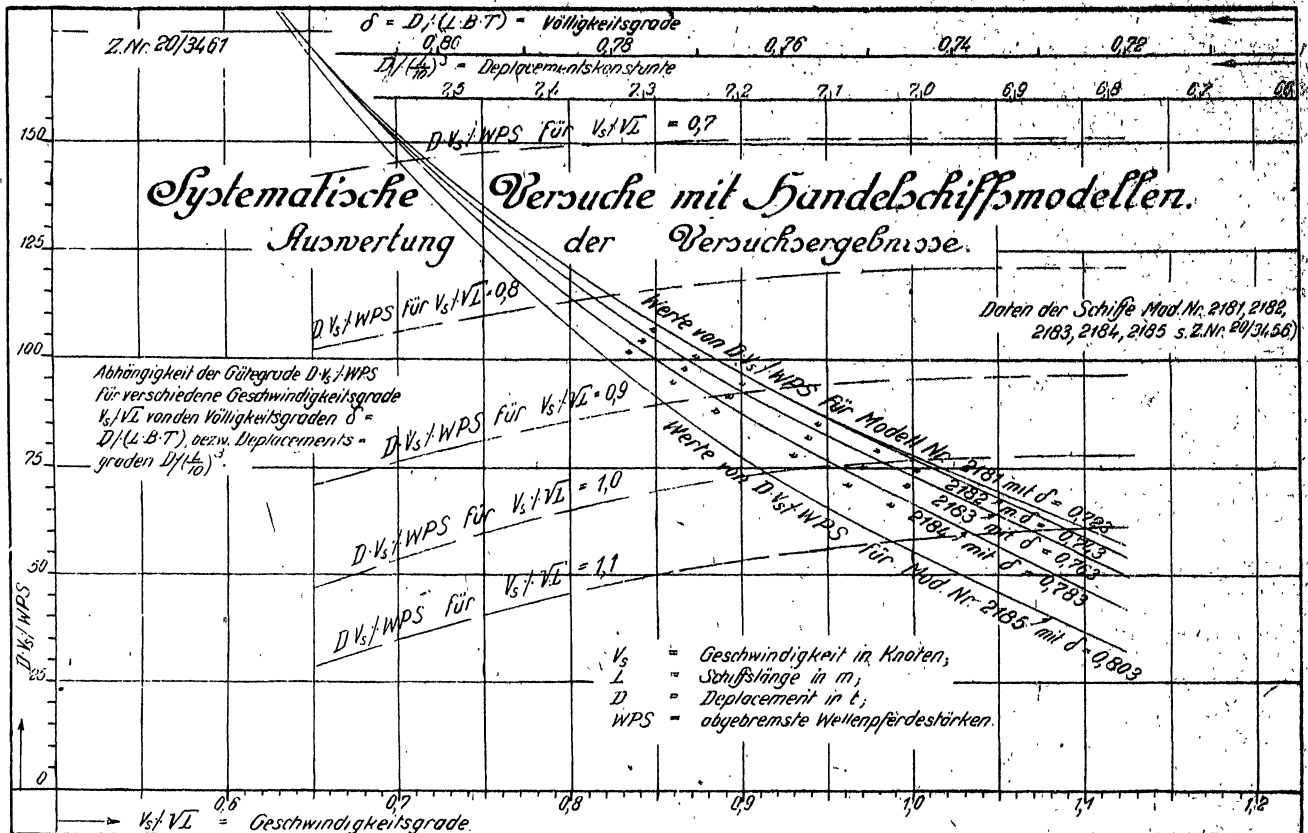 δ = D/(L·B·T) = Völligkeitsgrade
Z.Nr. 20/3461
0,80 0,78 0,76 0,74 0,72
D/(L/10)³ = Deplacementskonstante
7,5 7,4 7,3 7,2 7,1 7,0 6,9 6,8 6,7 6,6
D·Vs/WPS für Vs/√L = 0,7
Systematische Versuche mit Handelschiffsmodellen.
Auswertung der Versuchsergebnisse.
D·Vs/WPS für Vs/√L = 0,8
Daten der Schiffe Mod.Nr. 2181, 2182,
2183, 2184, 2185 s. Z.Nr. 20/3456)
Abhängigkeit der Gütegrade D·Vs/WPS
für verschiedene Geschwindigkeitsgrade
Vs/√L von den Völligkeitsgraden δ =
D/(L·B·T), bezw. Deplacements=
graden D/(L/10)³.
D·Vs/WPS für Vs/√L = 0,9
D·Vs/WPS für Vs/√L = 1,0
D·Vs/WPS für Vs/√L = 1,1
Werte von D·Vs/WPS für Modell Nr. 2181 mit δ = 0,723
" " " " 2182 " m. δ = 0,743
" " " " 2183 mit δ = 0,763
" " " " 2184 mit δ = 0,783
Werte von D·Vs/WPS für Mod. Nr. 2185 mit δ = 0,803
Vs = Geschwindigkeit in Knoten;
L " Schiffslänge in m;
D " Deplacement in t;
WPS = abgebremste Wellenpferdestärken.
D·Vs/WPS
150
125
100
75
50
25
0
0,6 0,7 0,8 0,9 1,0 1,1 1,2
Vs/√L = Geschwindigkeitsgrade.